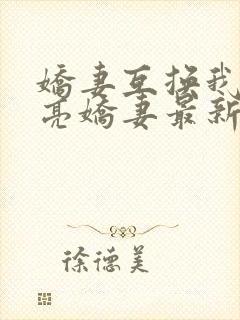 嬌妻互換我
亮嬌妻最新
徐德美